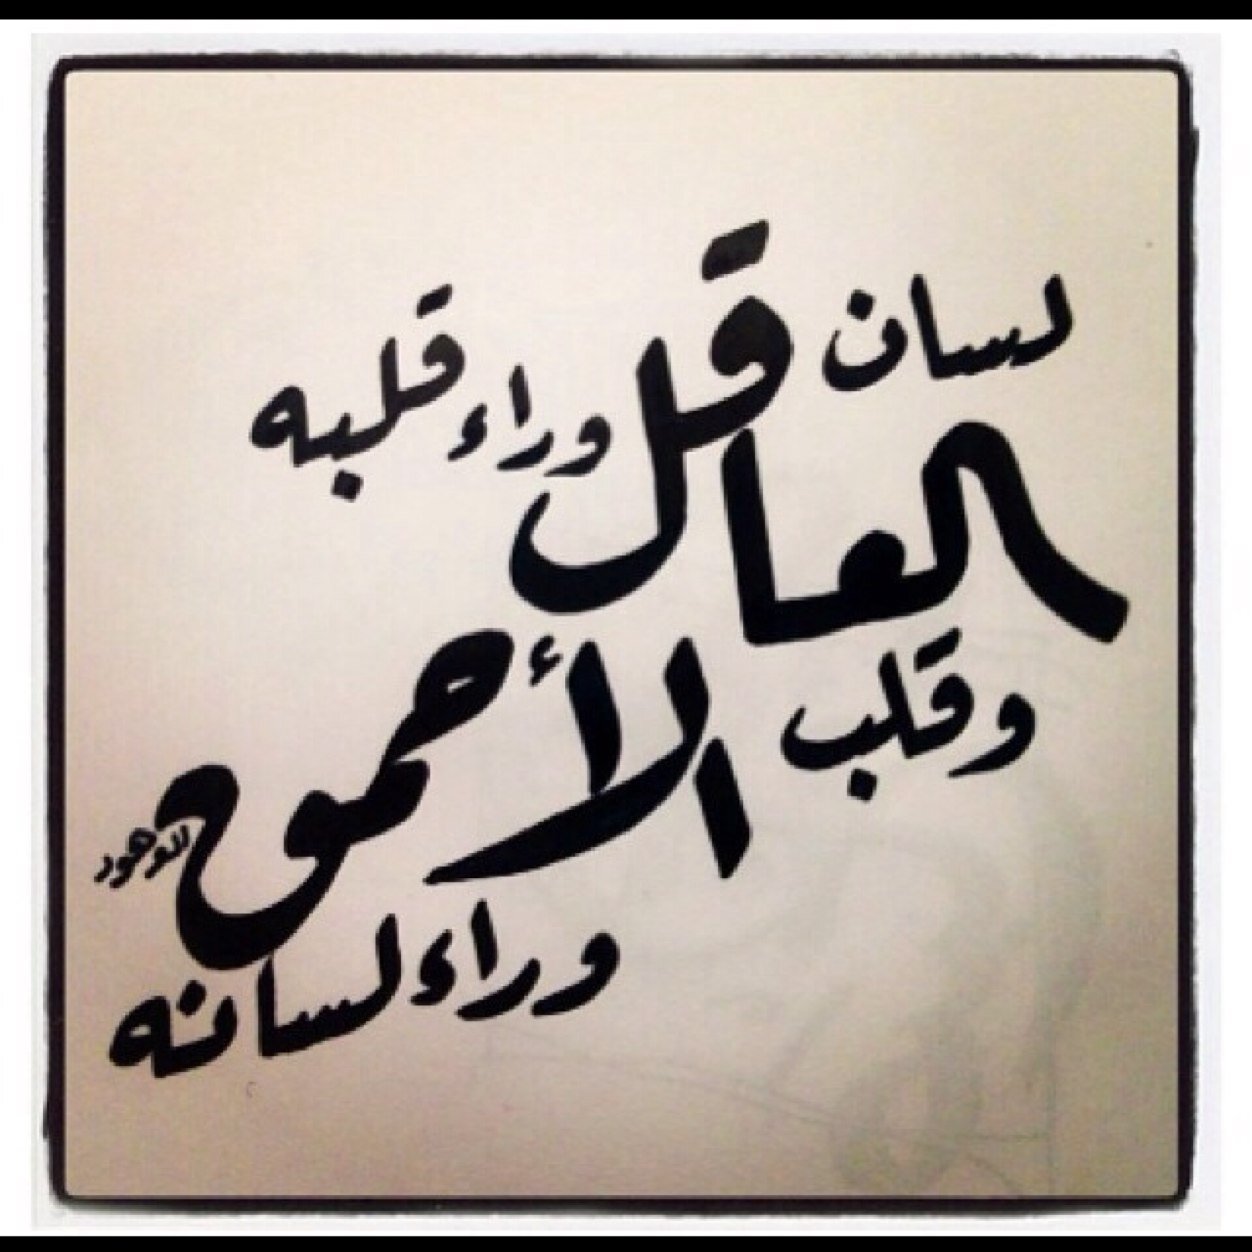 لسان العاقل وراء قلبه
وقلب الأحمق
وراء لسانه